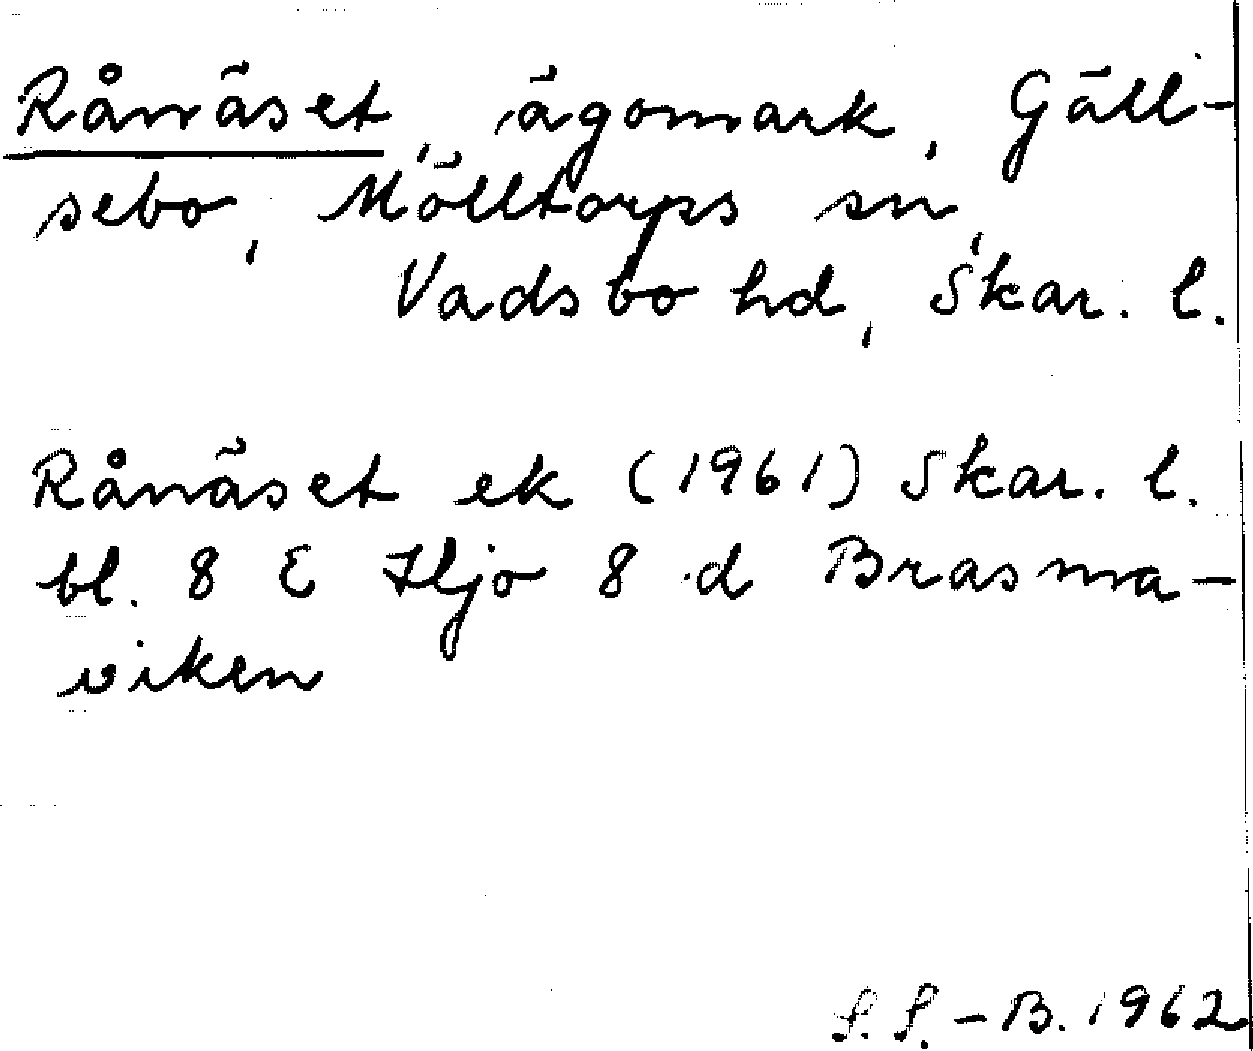 Rånäset, ägomark, Gäll-
sebo, Mölltorps sn,
Vadsbo hd, Skar. l.
Rånäset ek (1961) Skar. l.
bl. 8 E Hjo 8 d Brasma-
viken
S. S.-B. 1962